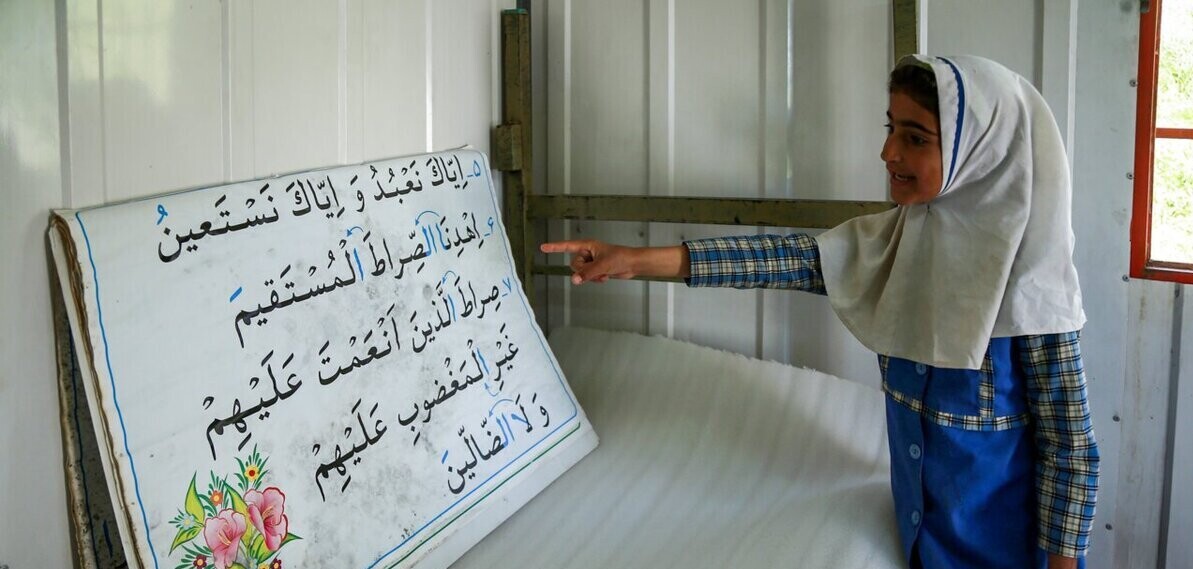 ۵- اِیّاکَ نَعْبُدُ وَ اِیّاکَ نَسْتَعینُ
۶- اِهْدِنَا الصِّراطَ الْمُسْتَقیمَ
۷- صِراطَ الَّذینَ اَنْعَمْتَ عَلَیْهِمْ
غَیْرِ الْمَغْضُوبِ عَلَیْهِمْ
وَ لَا الضّالّینَ